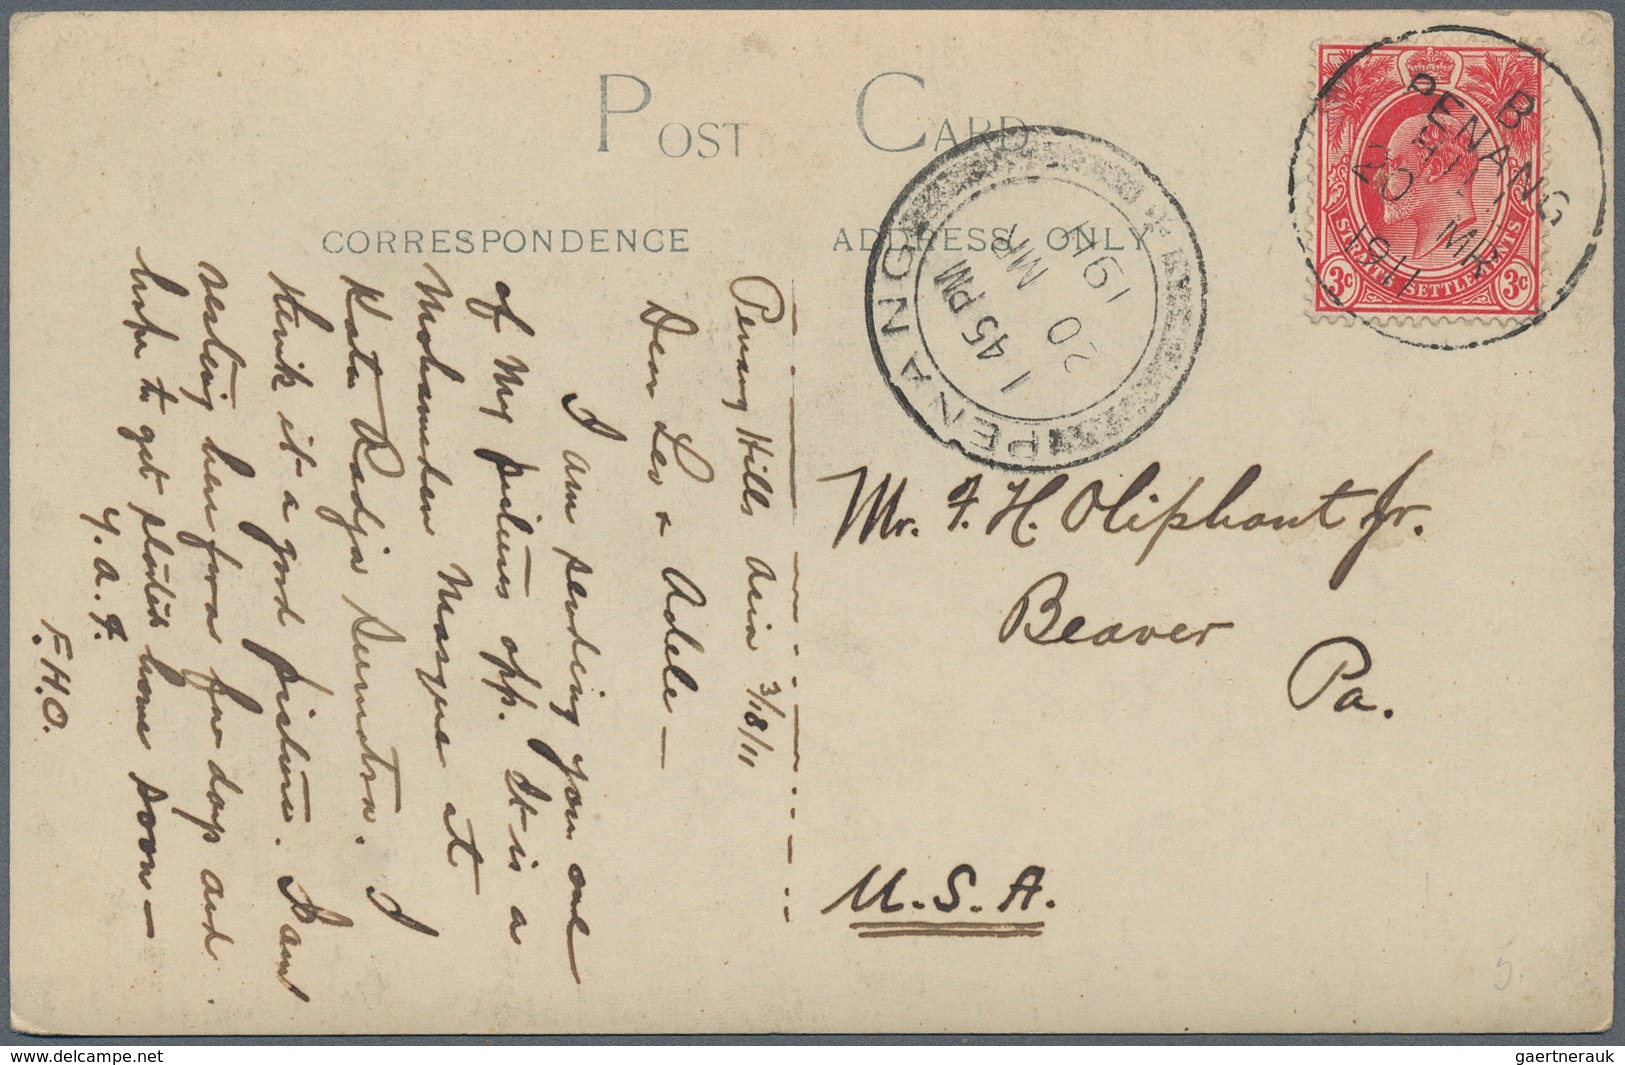 POST CARD
CORRESPONDENCE
ADDRESS ONLY
Penang Hills Asia 3/18/11
Dear Leo & Adele —
I am sending you one
of my pictures opp. It is a
Mohameden Mosque at
Kota Radja Sumatra. I
think it a good picture. I am
resting here for a few days and
hope to get started home soon —
Y. A. F.
F.H.O.
Mr. F. H. Oliphant Jr.
Beaver
Pa.
U.S.A.
PENANG
1 45 PM
20 MR
1911
B
PENANG
20 MR
1911
STRAITS SETTLEMENTS
3c 3c
5.
delcampe.net
gaertnerauk